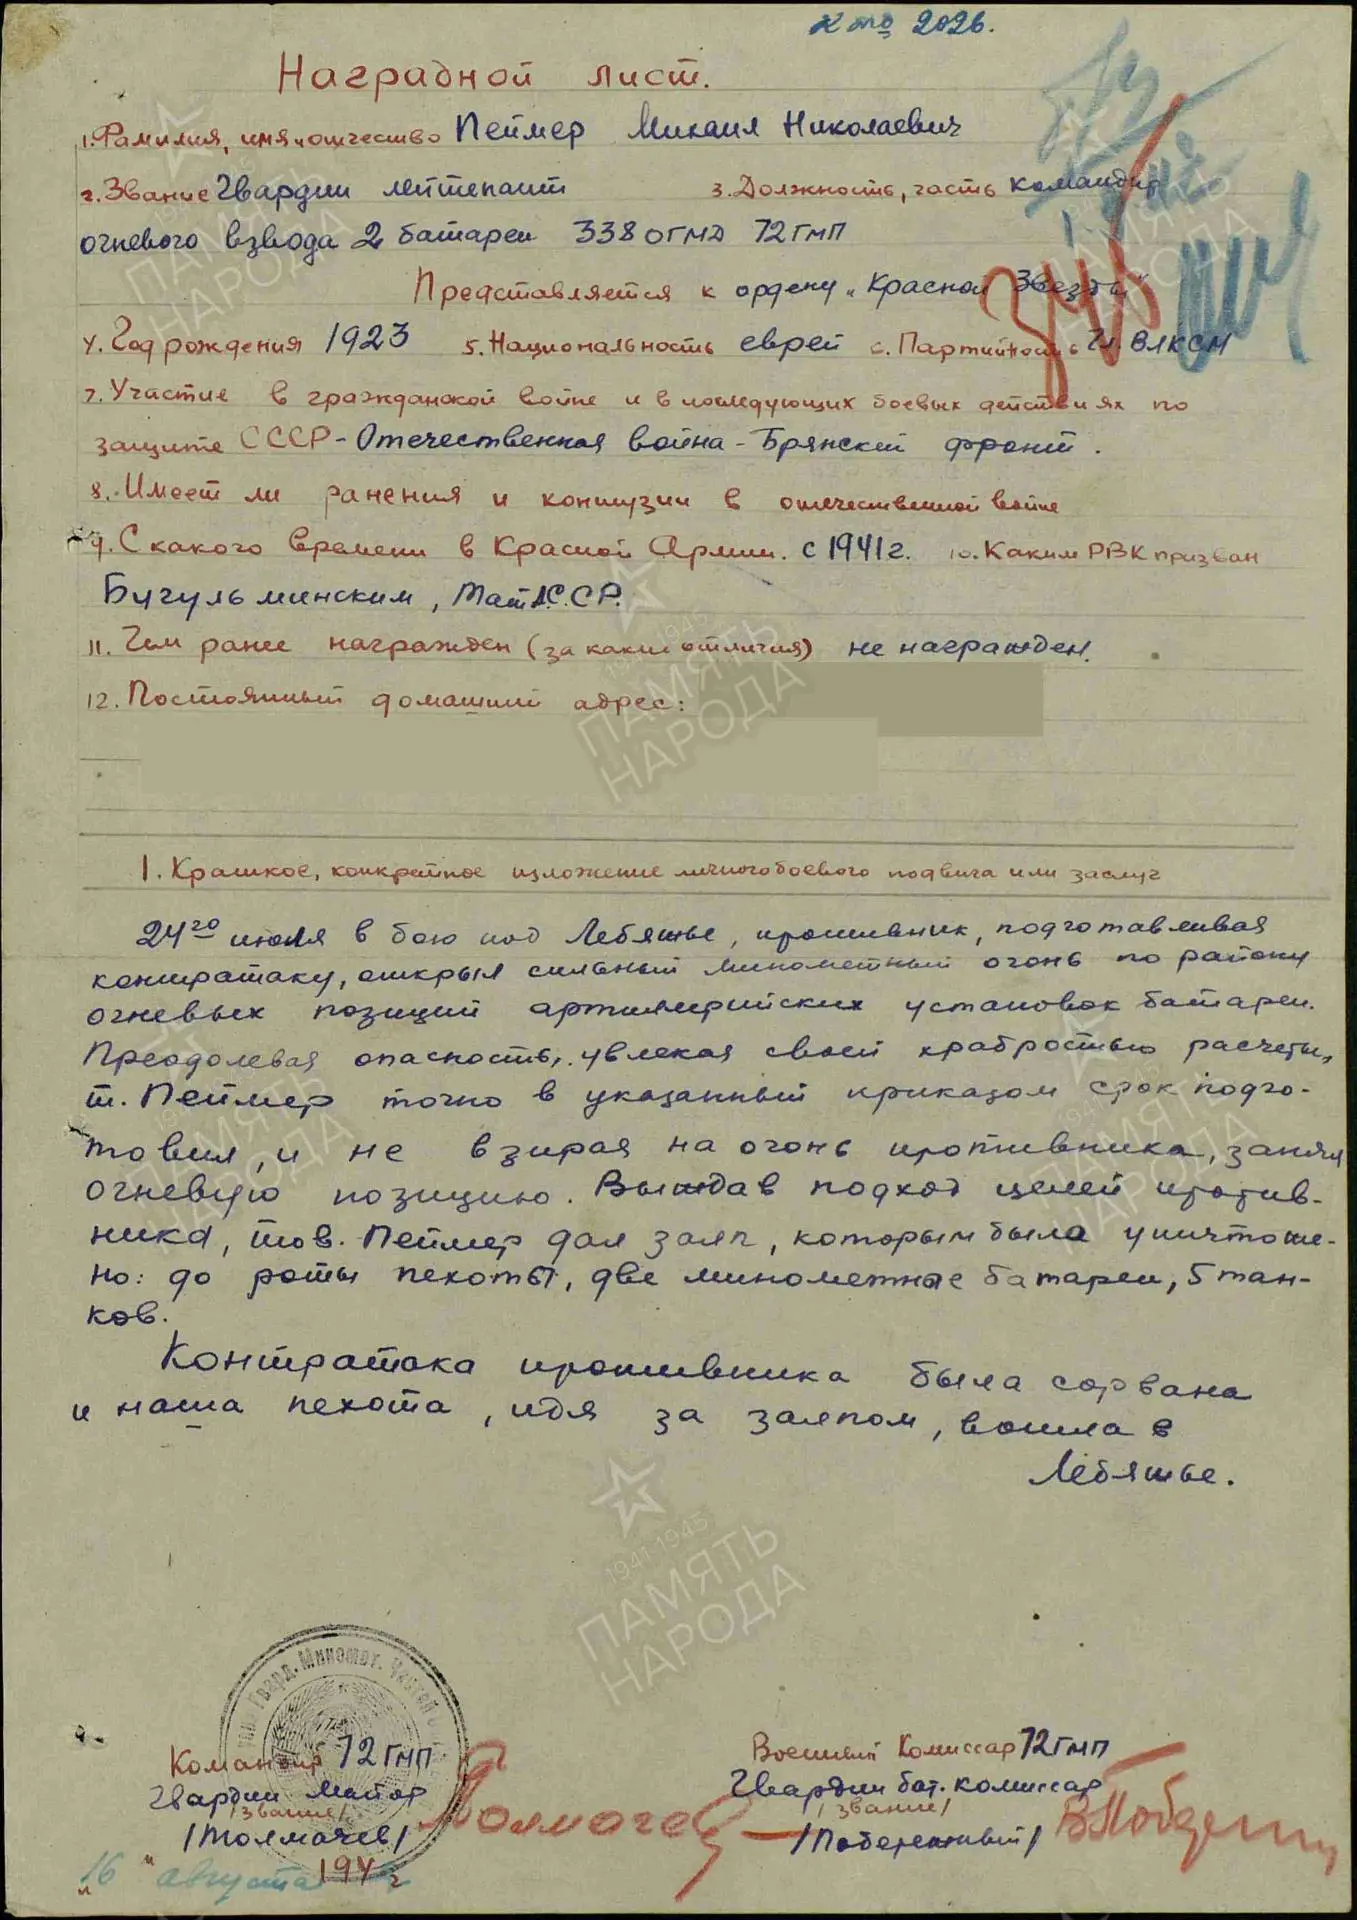 2026.
Наградной лист.
1. Фамилия, имя и отчество Пеймер Михаил Николаевич
2. Звание Гвардии лейтенант 3. Должность, часть командир
огневого взвода 2 батареи 338 ОГМД 72 ГМП
Представляется к ордену „Красной Звезды"
4. Год рождения 1923 5. Национальность еврей 6. Партийность Чл. ВЛКСМ
7. Участие в гражданской войне и в последующих боевых действиях по
защите СССР - Отечественная война - Брянский фронт.
8. Имеет ли ранения и контузии в отечественной войне
9. С какого времени в Красной Армии. с 1941 г. 10. Каким РВК призван
Бугульминским, Тат А.С.С.Р.
11. Чем ранее награжден (за какие отличия) не награжден.
12. Постоянный домашний адрес:
1. Краткое, конкретное изложение личного боевого подвига или заслуг
24го июля в бою под Лебяжье, противник, подготавливая
контратаку, открыл сильный минометный огонь по району
огневых позиций артиллерийских установок батареи.
Преодолевая опасность, увлекая своей храбростью расчеты,
т. Пеймер точно в указанный приказом срок подго-
товил, и не взирая на огонь противника, занял
огневую позицию. Выждав подход целей против-
ника, тов. Пеймер дал залп, которым была уничтоже-
но: до роты пехоты, две минометные батареи, 5 тан-
ков.
Контратака противника была сорвана
и наша пехота, идя за залпом, вошла в
Лебяжье.
Гвард. Миномет. Частей
Командир 72 ГМП
Гвардии майор
/звание/
/Толмачев/ Толмачев
"16" августа 194 г
Военный Комиссар 72 ГМП
Гвардии бат. комиссар
/звание/
/Побережный/
ПАМЯТЬ
НАРОДА
1941 1945